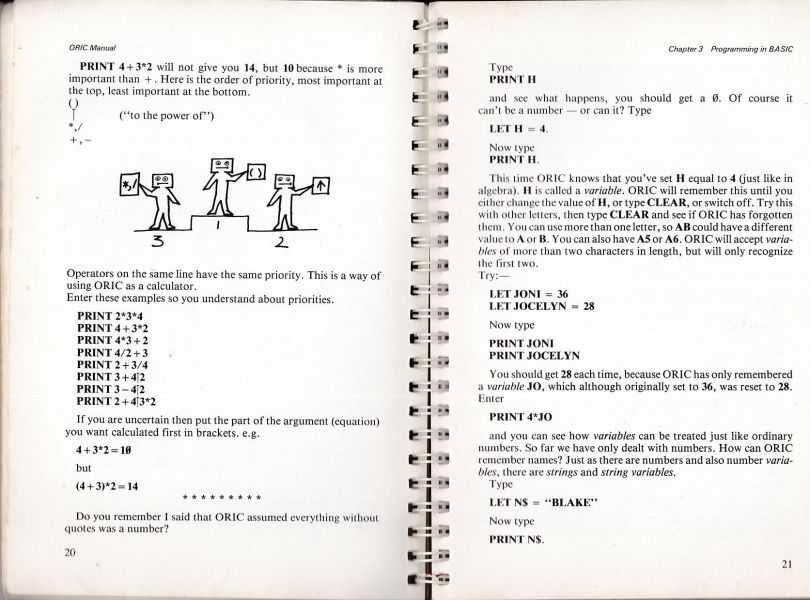 ORIC Manual
PRINT 4+3*2 will not give you 14, but 10 because * is more
important than +. Here is the order of priority, most important at
the top, least important at the bottom.
()
↑ ("to the power of")
*,/
+,−
*,/
()
↑
3
1
2
Operators on the same line have the same priority. This is a way of
using ORIC as a calculator.
Enter these examples so you understand about priorities.
PRINT 2*3*4
PRINT 4+3*2
PRINT 4*3+2
PRINT 4/2+3
PRINT 2+3/4
PRINT 3+4↑2
PRINT 3−4↑2
PRINT 2+4↑3*2
If you are uncertain then put the part of the argument (equation)
you want calculated first in brackets. e.g.
4+3*2=10
but
(4+3)*2=14
* * * * * * * * *
Do you remember I said that ORIC assumed everything without
quotes was a number?
20
Chapter 3 Programming in BASIC
Type
PRINT H
and see what happens, you should get a Ø. Of course it
can't be a number — or can it? Type
LET H = 4.
Now type
PRINT H.
This time ORIC knows that you've set H equal to 4 (just like in
algebra). H is called a variable. ORIC will remember this until you
either change the value of H, or type CLEAR, or switch off. Try this
with other letters, then type CLEAR and see if ORIC has forgotten
them. You can use more than one letter, so AB could have a different
value to A or B. You can also have A5 or A6. ORIC will accept varia-
bles of more than two characters in length, but will only recognize
the first two.
Try:—
LET JONI = 36
LET JOCELYN = 28
Now type
PRINT JONI
PRINT JOCELYN
You should get 28 each time, because ORIC has only remembered
a variable JO, which although originally set to 36, was reset to 28.
Enter
PRINT 4*JO
and you can see how variables can be treated just like ordinary
numbers. So far we have only dealt with numbers. How can ORIC
remember names? Just as there are numbers and also number varia-
bles, there are strings and string variables.
Type
LET N$ = "BLAKE"
Now type
PRINT N$.
21